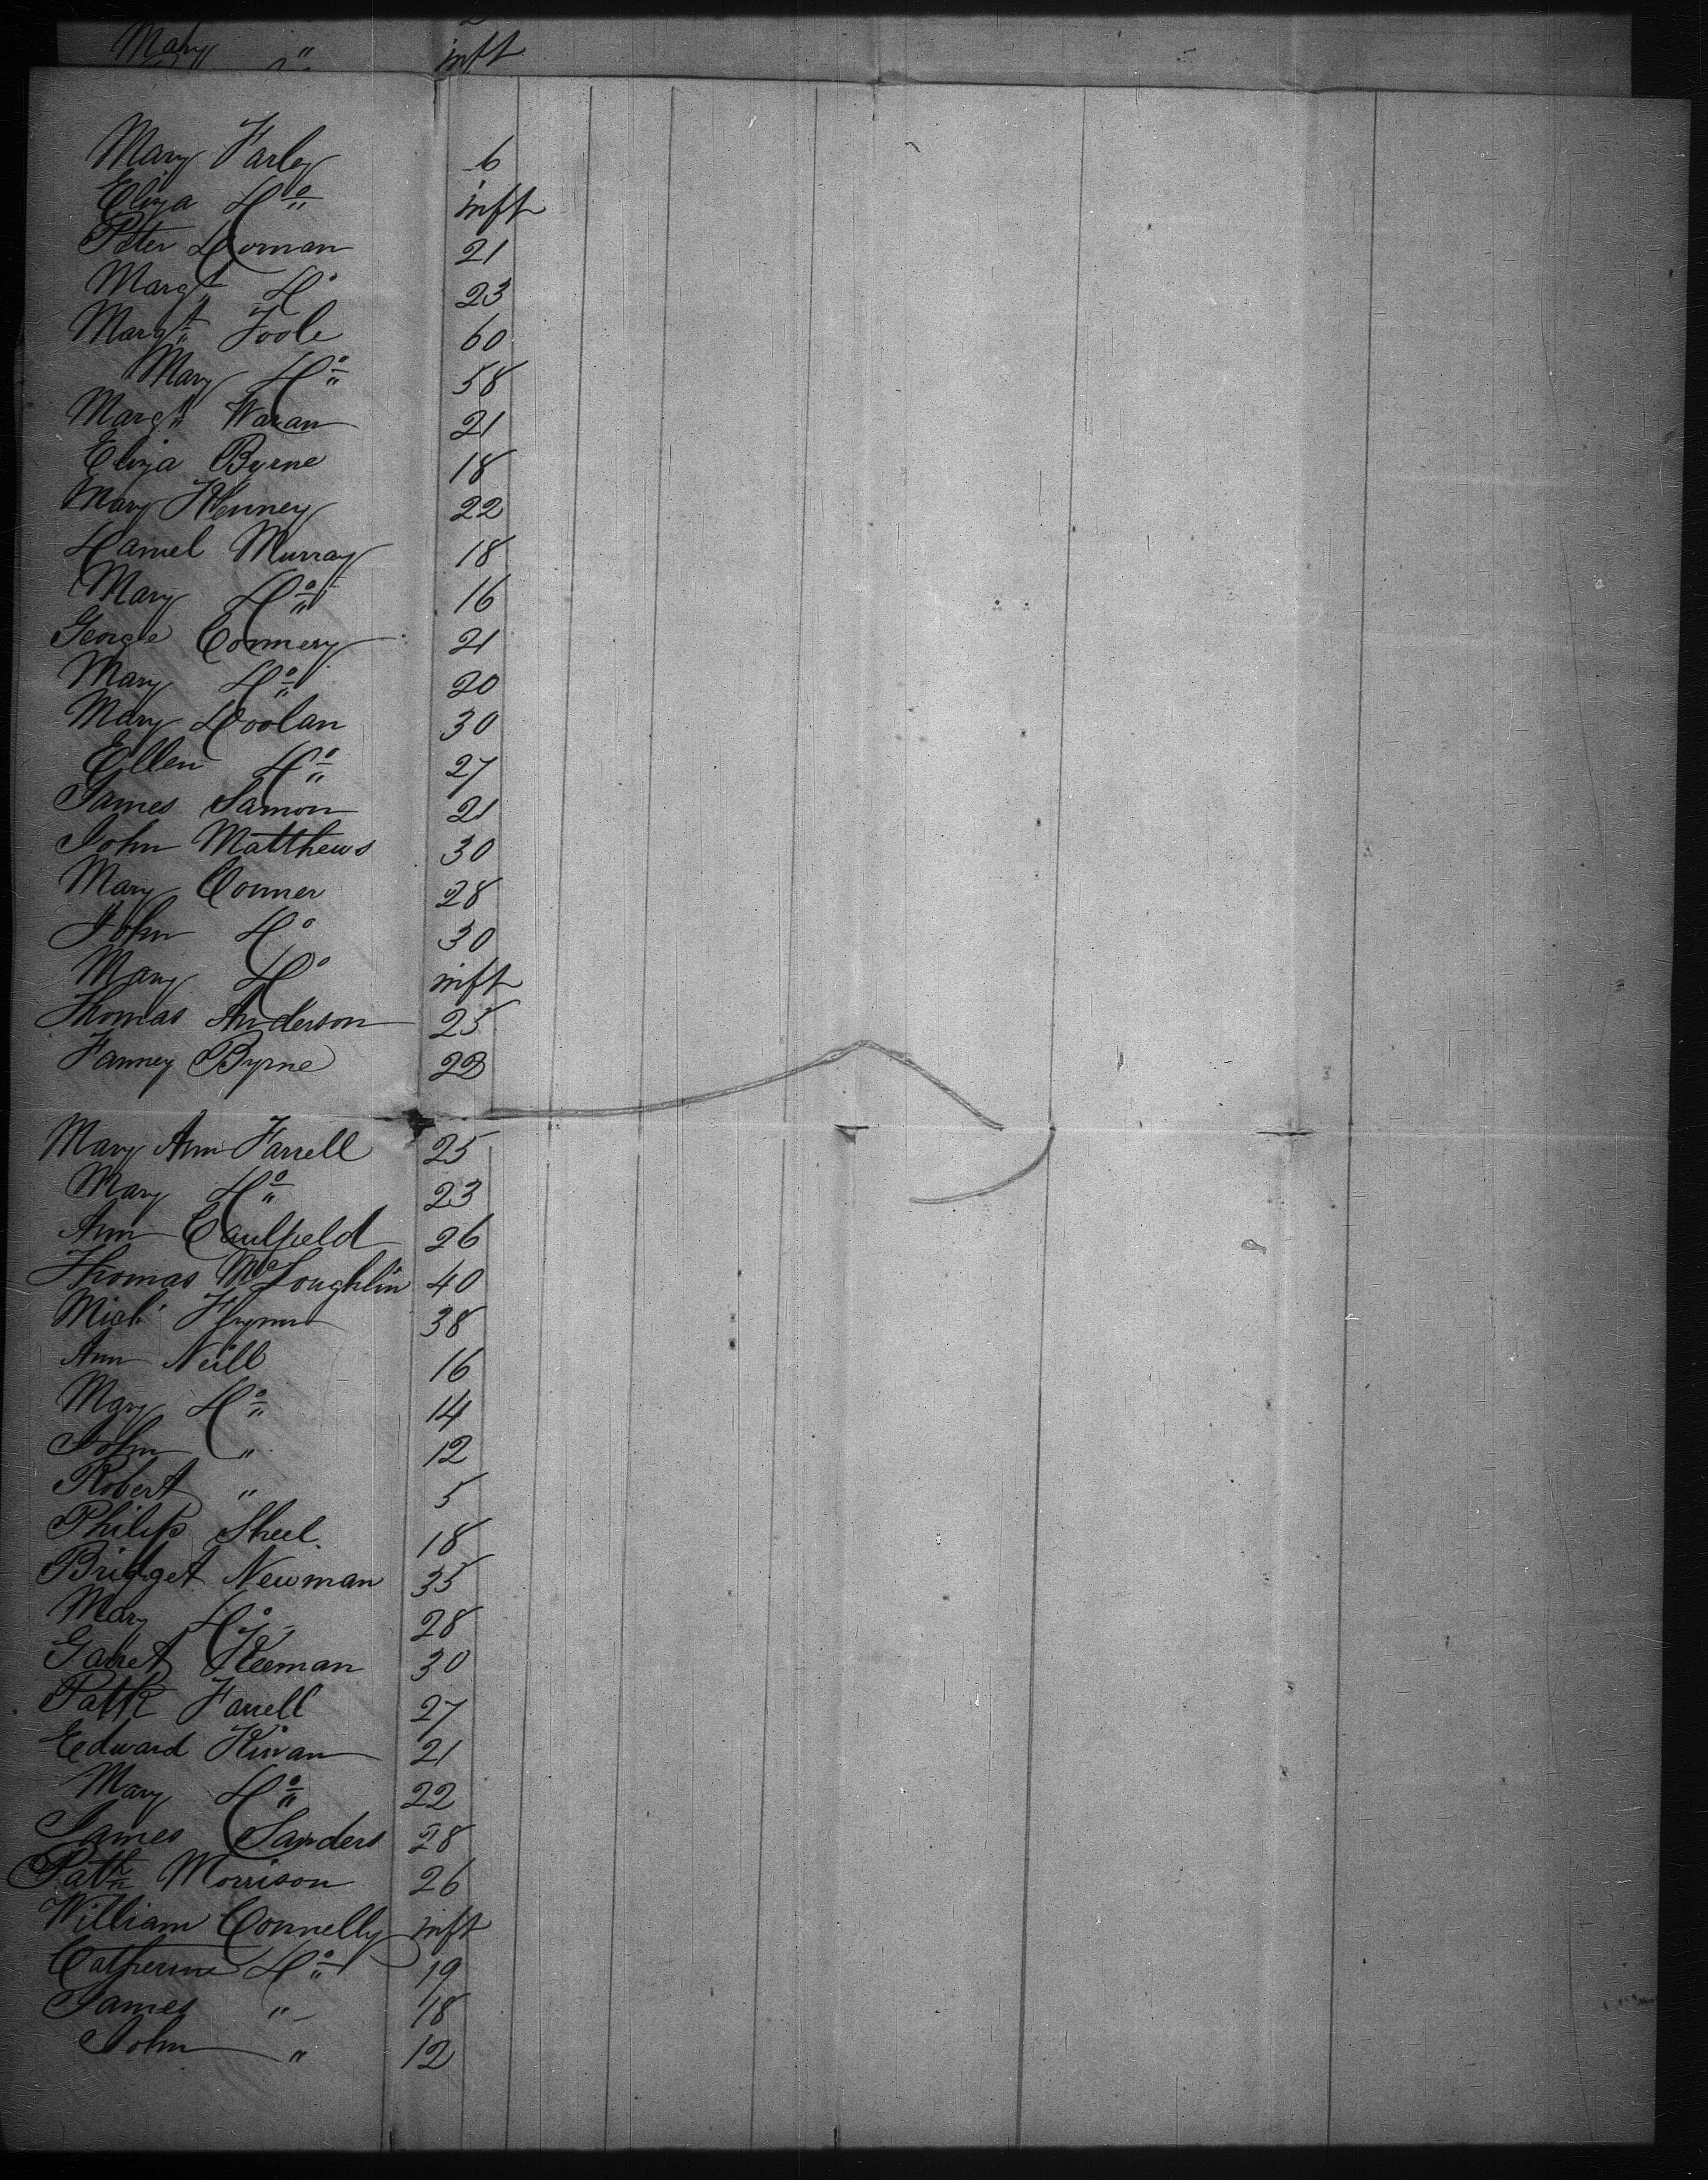 Mary " inft
Mary Farley 6
Eliza Do inft
Peter Dornan 21
Margt Do 23
Margt Toole 60
Mary Do 58
Margt Waran 21
Eliza Byrne 18
Mary Kenney 22
Daniel Murray 18
Mary Do 16
George Connery 21
Mary Do 20
Mary Doolan 30
Ellen Do 27
James Samon 21
John Matthews 30
Mary Conner 28
John Do 30
Mary Do inft
Thomas Anderson 25
Fanney Byrne 22
Mary Ann Farrell 25
Mary Do 23
Ann Caulfield 26
Thomas McLoughlin 40
Michl Flynn 38
Ann Neill 16
Mary Do 14
John " 12
Robert " 5
Philip Sheel 18
Bridget Newman 35
Mary Do 28
Garret Keeman 30
Patk Farrell 27
Edward Kirwan 21
Mary Do 22
James Sanders 28
Patk Morrison 26
William Connelly inft
Catherine Do 19
James " 18
John " 12